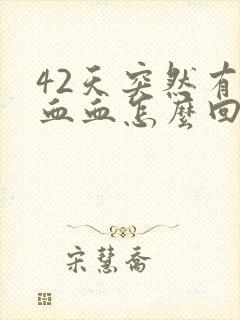 42天突然有
血血怎麼回
宋慧喬